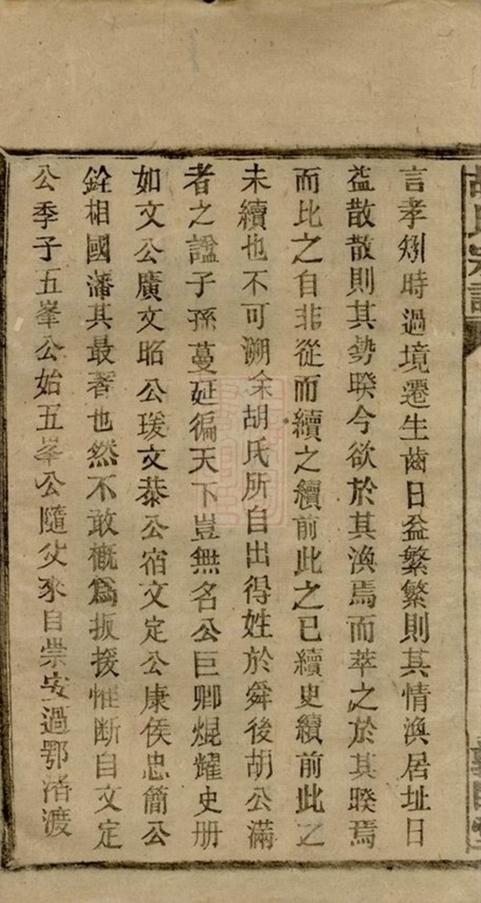 胡氏宗譜
言孝矧時過境遷生齒日益繁繁則其情渙居址日
益散散則其勢暌今欲於其渙焉而萃之於其暌焉
而比之自非從而續之續前此之已續更續前此之
未續也不可溯余胡氏所自出得姓於舜後胡公滿
者之諡子孫蔓延徧天下豈無名公巨卿焜耀史册
如文公廣文昭公瑗文恭公宿文定公康侯忠簡公
銓相國濙其最著也然不敢概爲扳援惟断自文定
公季子五峯公始五峯公隨父來自崇安過鄂渚渡